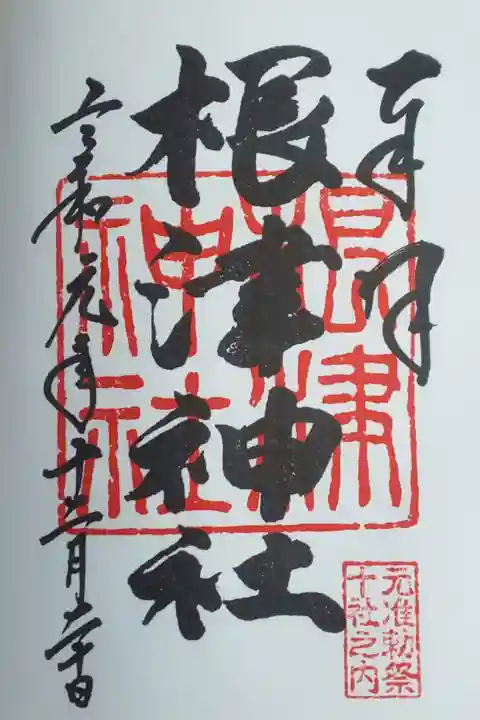 奉拝
根津神社
根津
神社
元准勅祭
十社之内
令和元年十二月十日